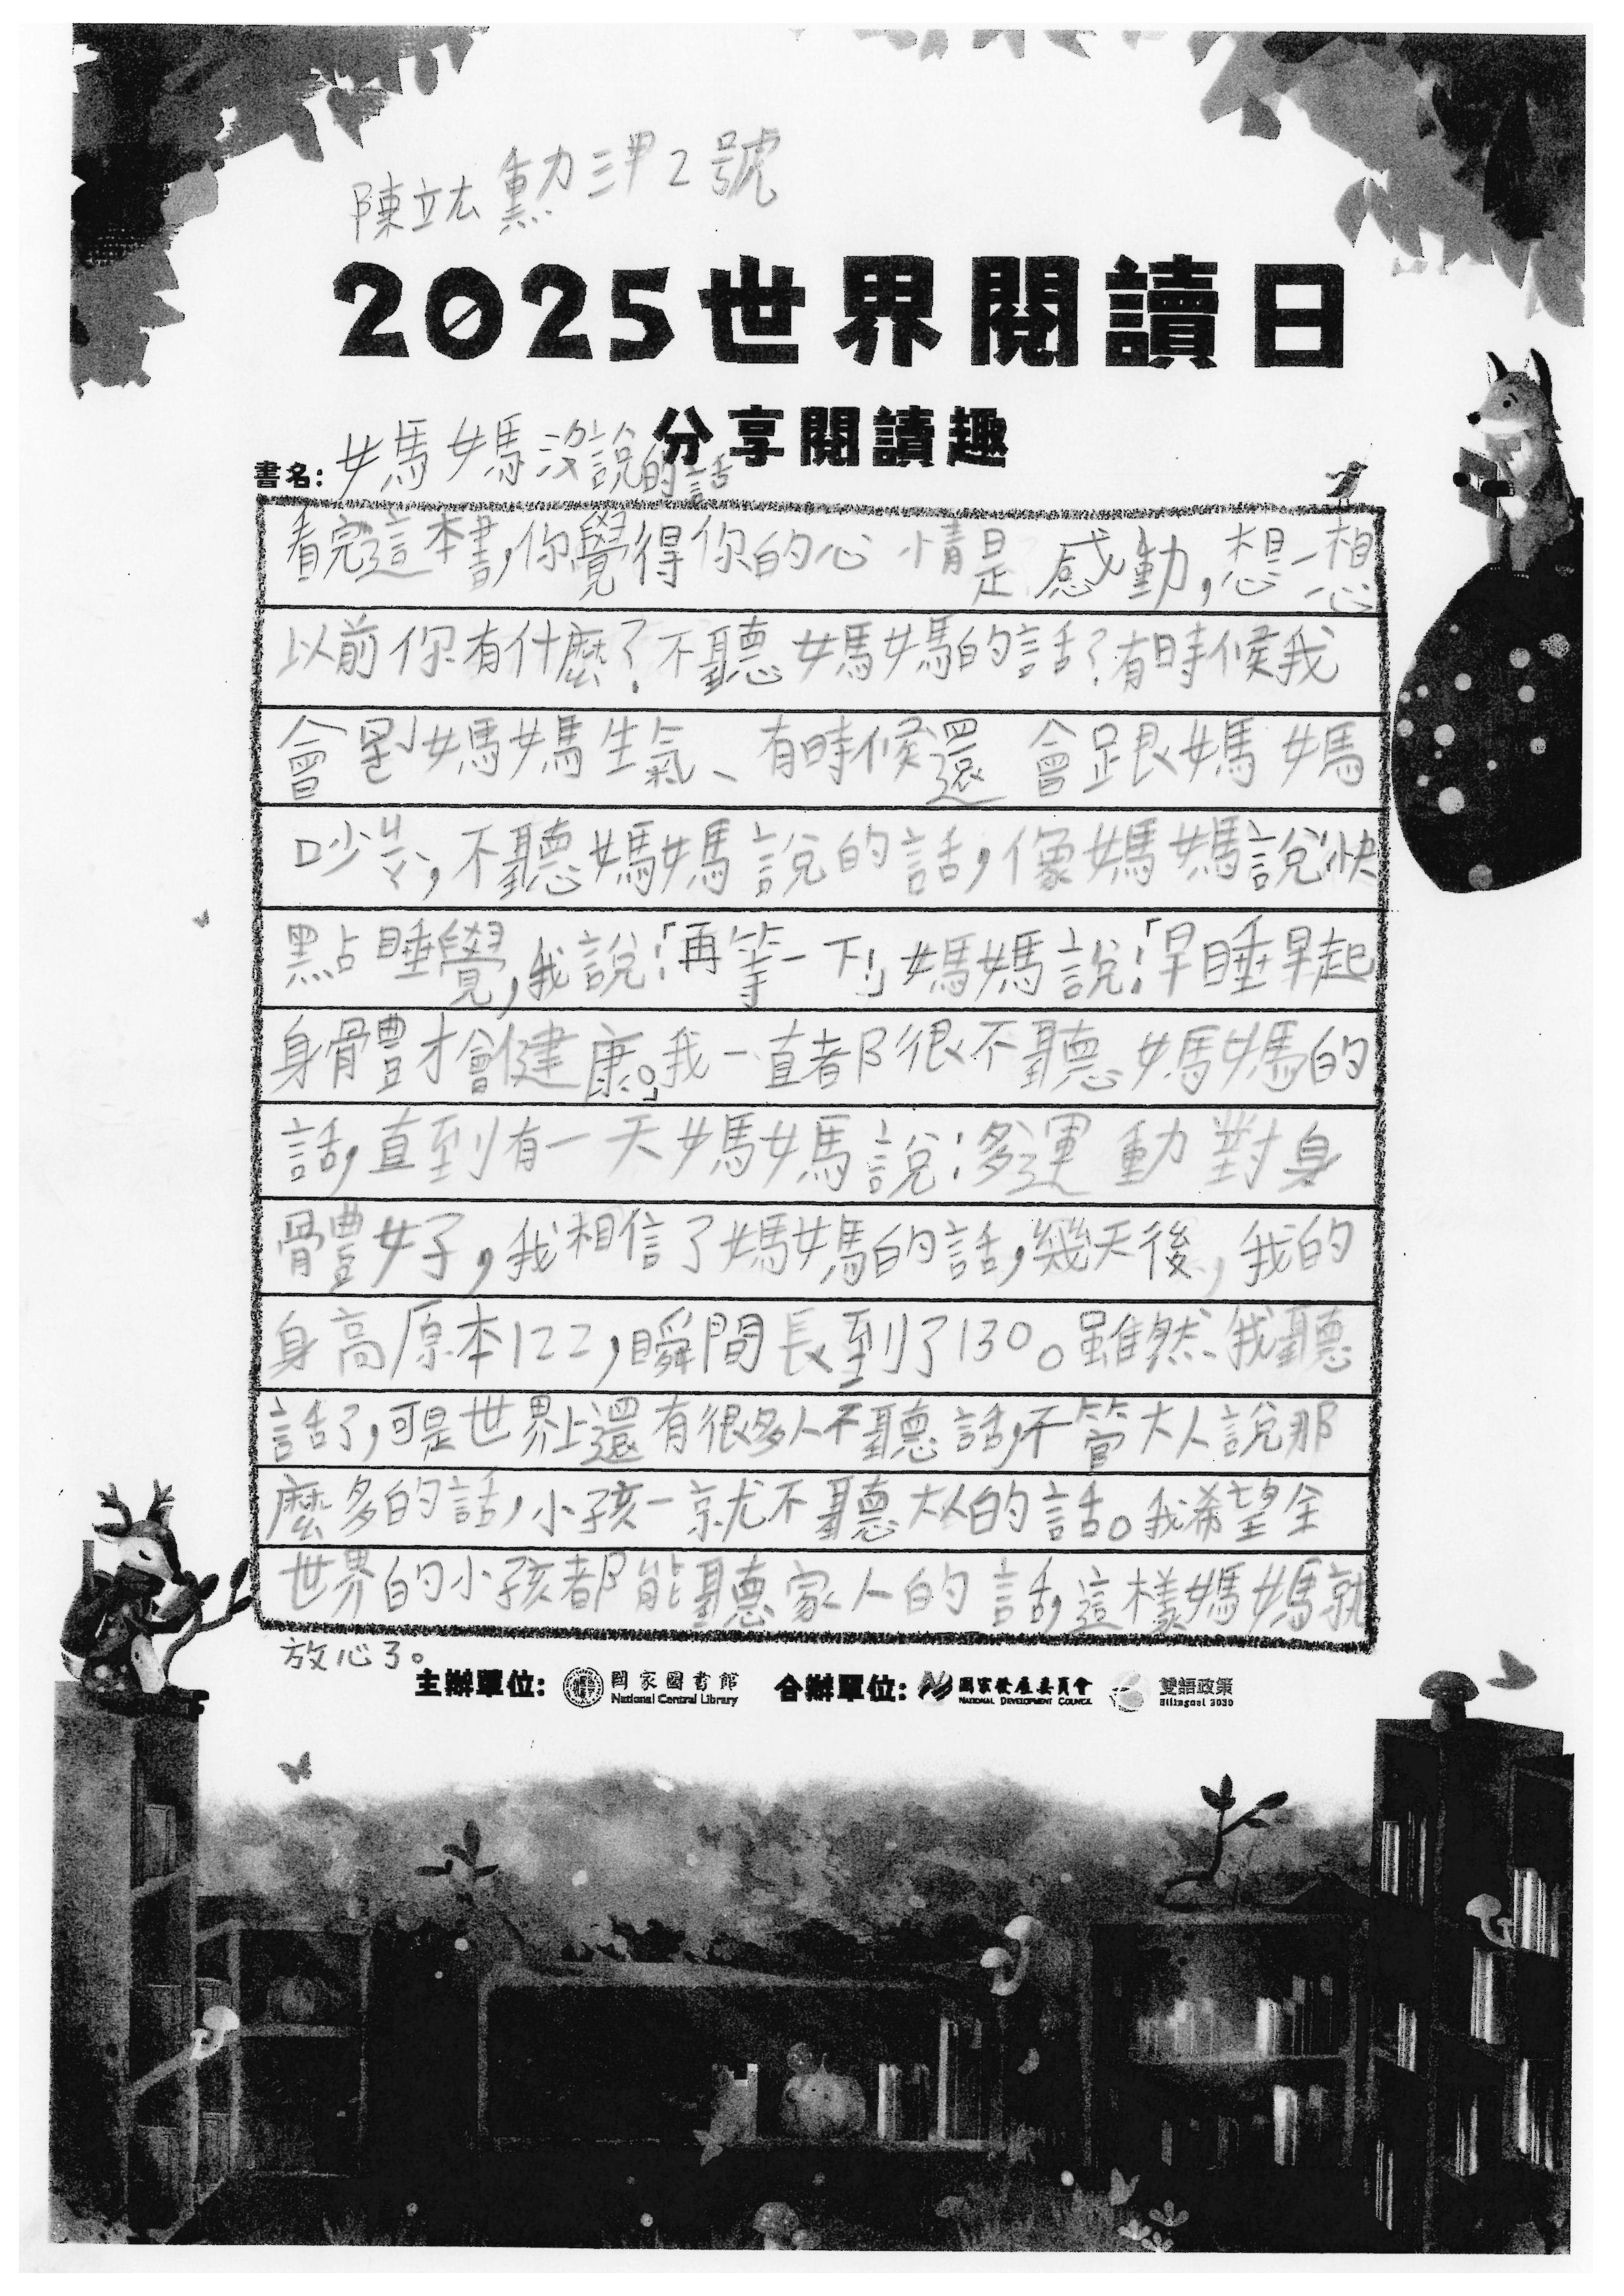 陳立厷勳 三甲 2號
2025世界閱讀日
分享閱讀趣
書名:媽媽沒說的話
看完這本書,你覺得你的心情是感動,想一想
以前你有什麼?不聽媽媽的話?有時候我
會對媽媽生氣、有時候還會跟媽媽
吵ㄐㄧㄚ,不聽媽媽說的話,像媽媽說快
點睡覺,我說:「再等一下!」媽媽說:「早睡早起
身體才會健康。」我一直都很不聽媽媽的
話,直到有一天媽媽說:多運動對身
體好,我相信了媽媽的話,幾天後,我的
身高原本122,瞬間長到了130。雖然、我聽
話了,可是世界上還有很多人不聽話,不管大人說那
麼多的話,小孩一就不聽大人的話。我希望全
世界的小孩都能聽家人的話,這樣媽媽就
放心了。
主辦單位: 國家圖書館 National Central Library 合辦單位: 國家發展委員會 NATIONAL DEVELOPMENT COUNCIL 雙語政策 Bilingual 2030